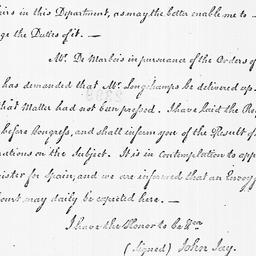 airs in this Department, as may the better enable me to
ge the Duties of it. —
Mr. De Marbois in pursuance of the Orders of
has demanded that Mr. Longchamps be delivered up.
that Matter had not been pressed. I have laid the
before Congress, and shall inform you of the Result of
rations on the Subject. It is in contemplation to app
ister for Spain, and we are informed that an Envoy
Court may daily be expected here. —
I have the Honor to be &ca
(signed) John Jay.